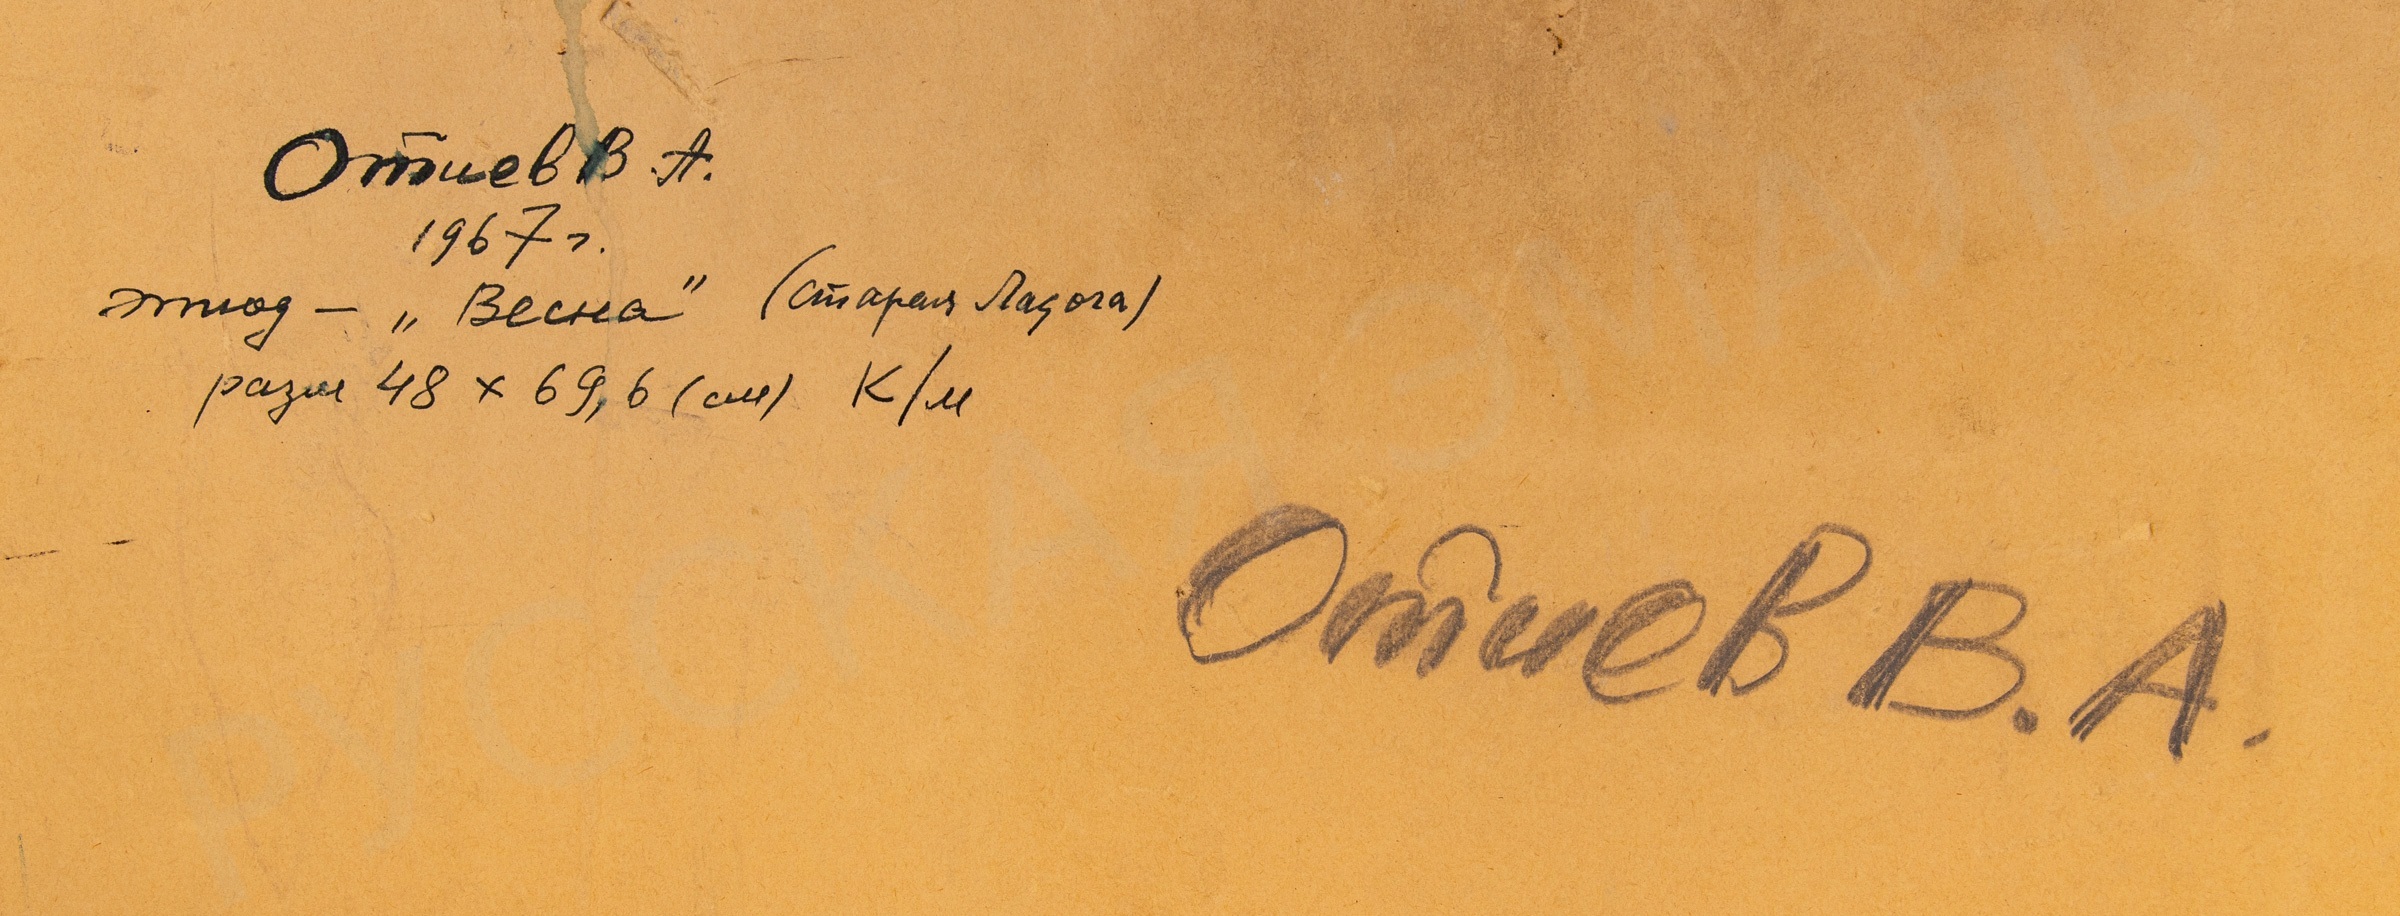 Отиев В.А.
1967 г.
этюд – „Весна" (Старая Ладога)
разм 48 x 69,6 (см) К/м
Отиев В.А.
РУССКАЯ ЭМАЛЬ